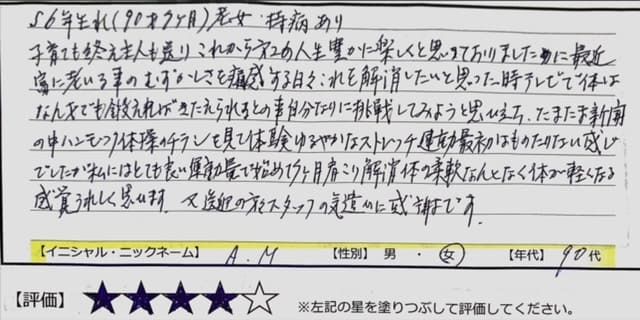 S6年生れ(90才7ヶ月)老女・持病あり
子育ても終え主人も送り これから方2の人生豊かに楽しくと思っておりましたのに最近
富に老いる事のむずかしさを痛感する日々これを解消したいと思った時テレビで体は
なん才でも鍛えればきたえられるとの事自分なりに挑戦してみようと思い立ち、たまたま新聞
の中ハンモック体操のチラシを見て体験ゆるやかなストレッチ運動最初はものたりない感じ
でしたが私にはとても良い運動量で始めて7ヶ月肩こり解消体の柔軟なんとなく体が軽くなる
感覚うれしく思います。又送迎の方スタッフの気遣いに感謝です。
【イニシャル・ニックネーム】 A.M 【性別】 男 ・ 女 【年代】 90代
【評価】 ★★★★☆ ※左記の星を塗りつぶして評価してください。